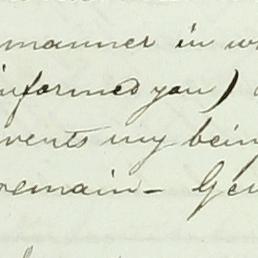 manner in w
informed you)
vents my being
remain - Gen